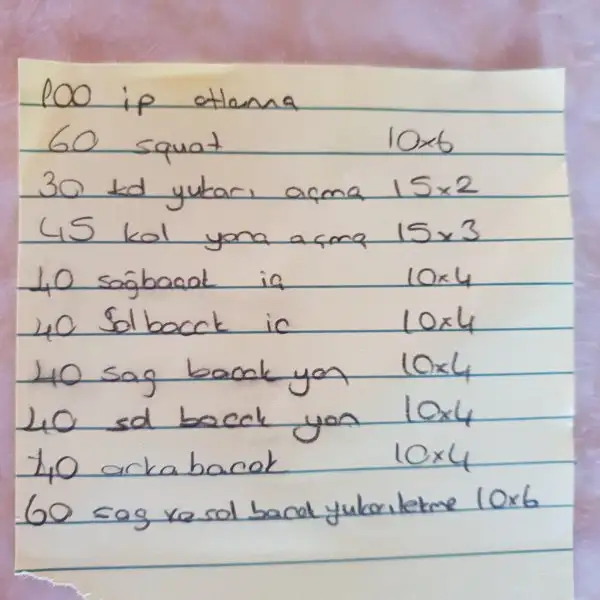 100 ip atlama
60 squat 10x6
30 kol yukarı açma 15x2
45 kol yana açma 15x3
40 sağ bacak iç
10x4
40 Sol bacak ic 10x4
40 sag bacak yan 10x4
40 sol bacak yan 10x4
40 arka bacak 10x4
60 sag ve sol bacak yukarı 10x6